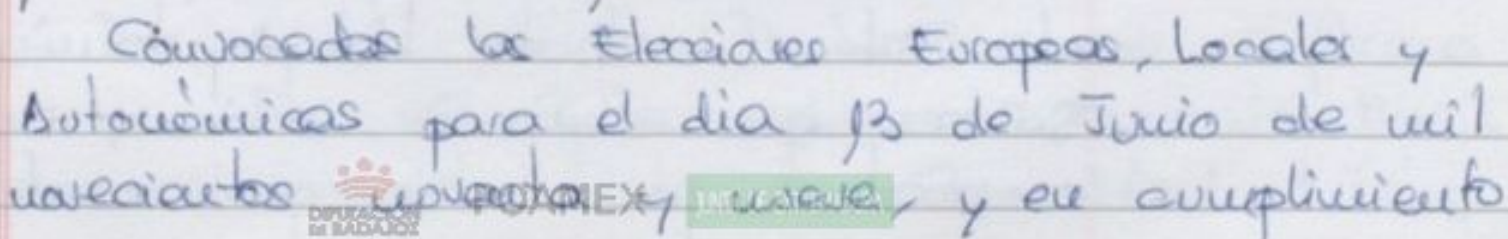 Convocadas las Elecciones Europeas, Locales y
Autonómicas para el dia 13 de Junio de mil
novecientos noventa y nueve, y en cumplimiento
DIPUTACIÓN
DE BADAJOZ